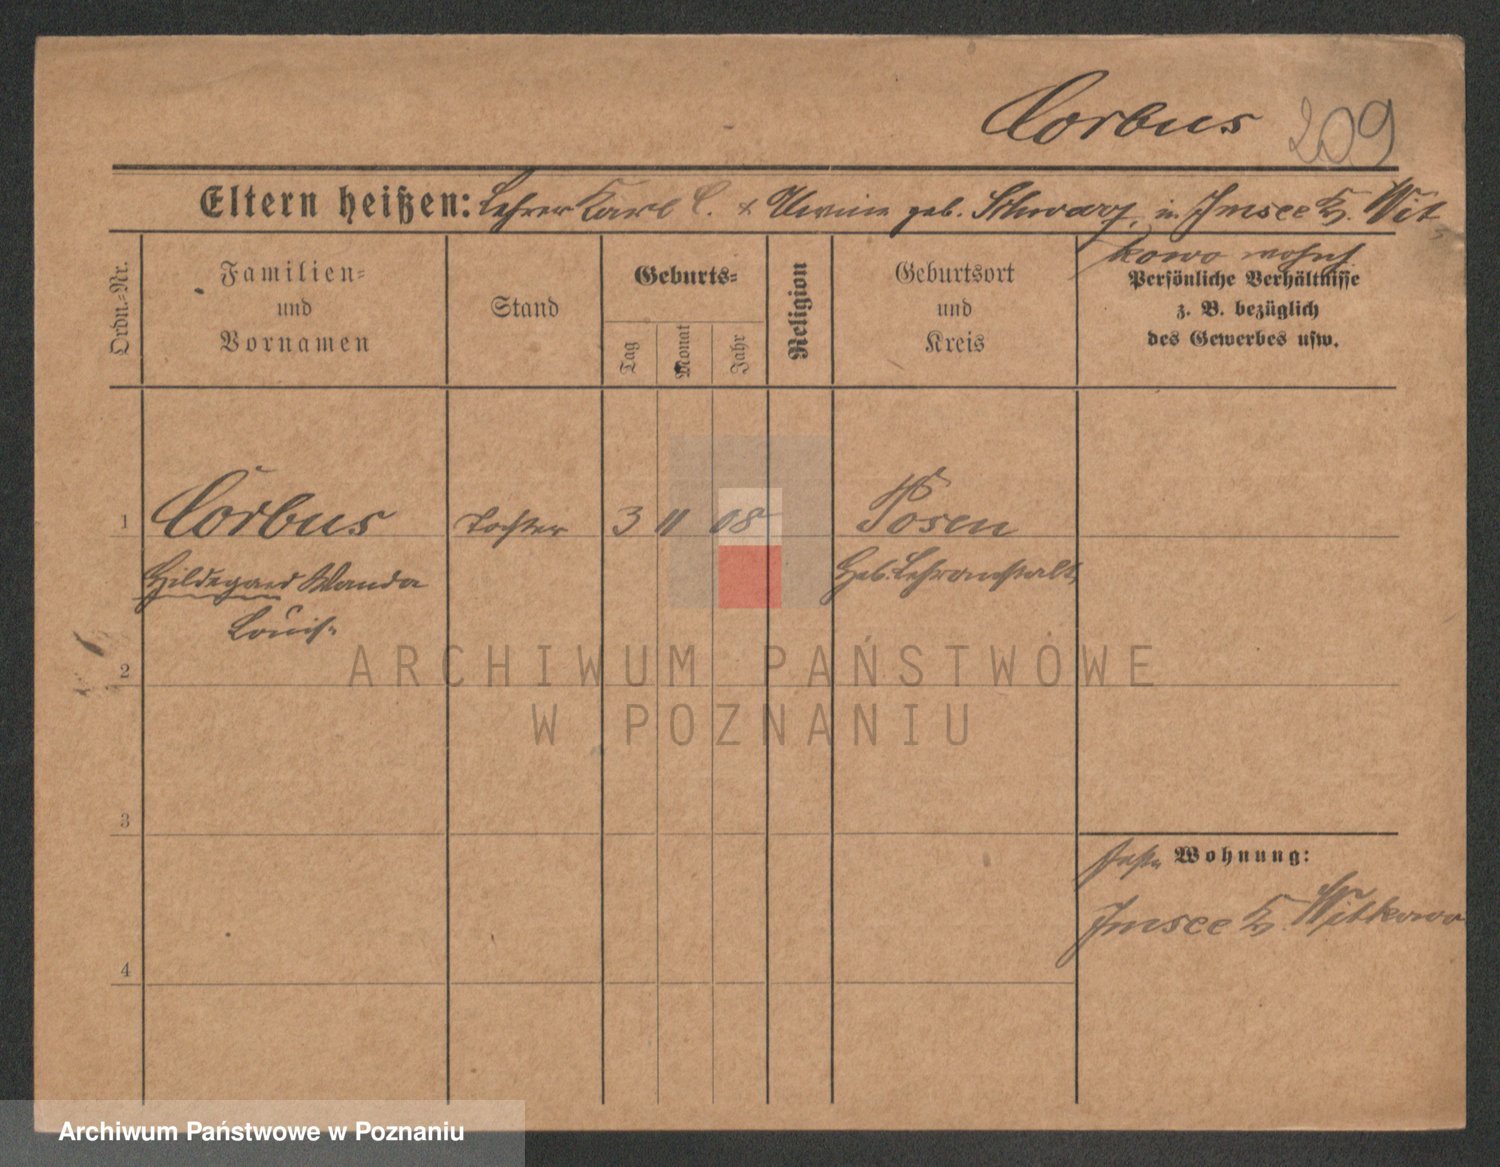 Corbus 209
Eltern heißen: Lehrer Karl C. geb. Schwarz, in Imsee Kr. Wit
kowo wohnh
Ordn.-Nr.
Familien-
und
Vornamen
Stand
Geburts-
Tag
Monat
Jahr
Religion
Geburtsort
und
Kreis
Persönliche Verhältnisse
z. B. bezüglich
des Gewerbes usw.
1 Corbus Tochter 3 11 08 Posen
Hildegard Wanda Heb. Lehranstalt
Louise
2
ARCHIWUM PAŃSTWOWE
W POZNANIU
3
Wohnung:
Imsee Kr. Witkowo
4
Archiwum Państwowe w Poznaniu